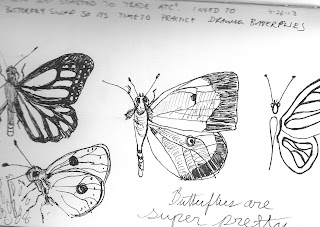 STARTED TO TRADE ATC! I NEED TO
BUTTERFLY SWAP SO ITS TIME TO PRACTICE DRAWING BUTTERFLIES
4-26-13
Butterflies are
super pretty